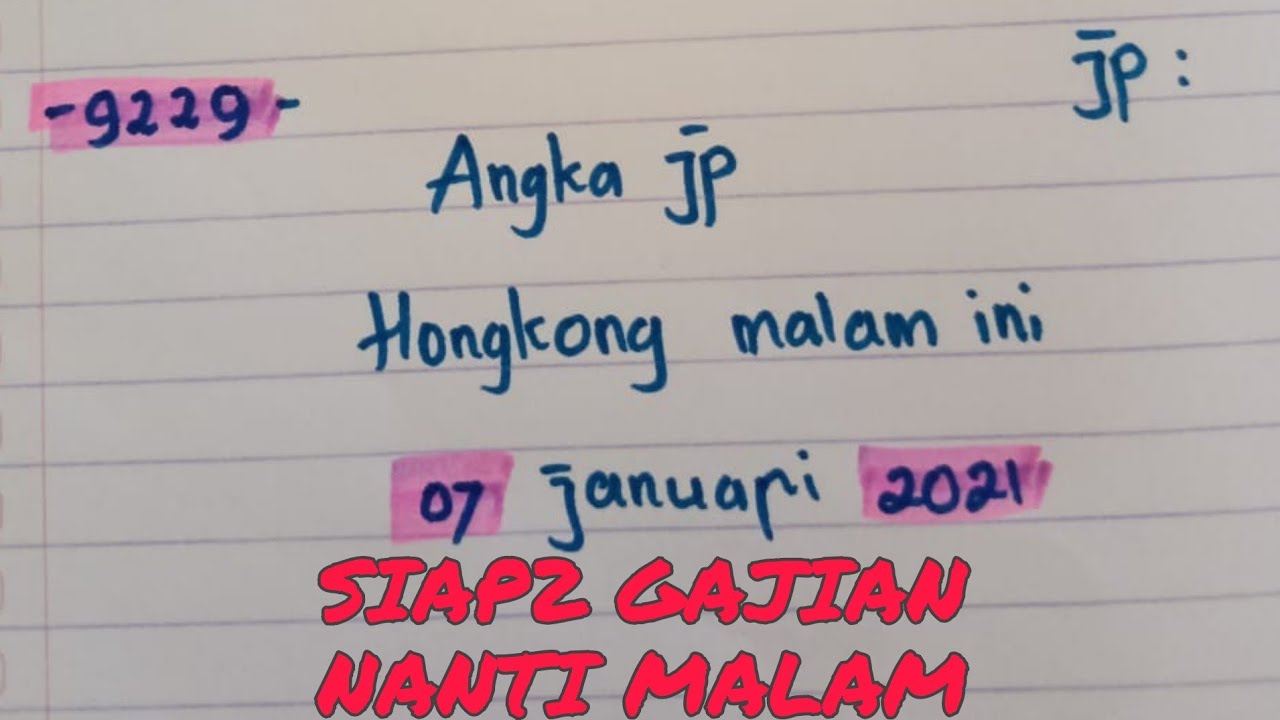 jp :
-9229-
Angka jp
Hongkong malam ini
07 januari 2021
SIAP2 GAJIAN
NANTI MALAM